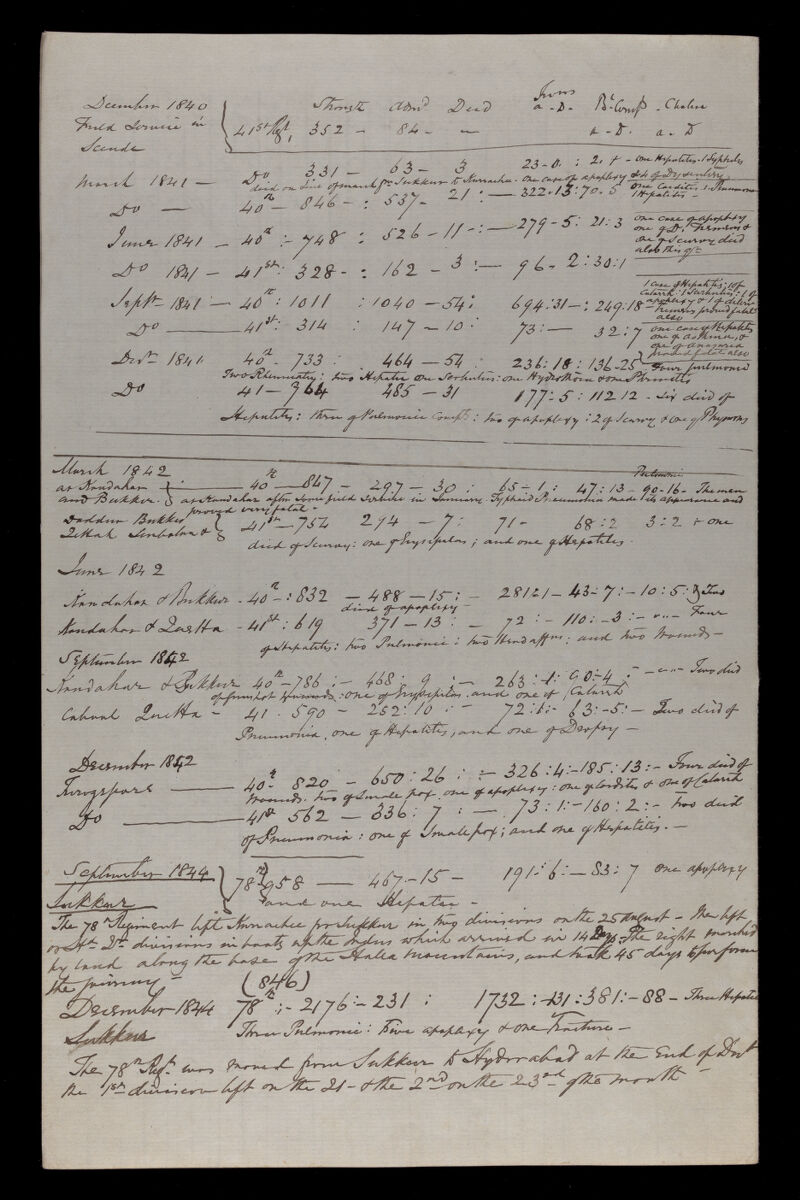 December 1840 Strength Admd Died Fevers a - D. Bl Compt Cholera
Field Service in 41st Regt, 352 - 84 - " a - D. a. D
Scinde
March 1841 - Do 331 - 63 - 3 23-0 : 2. + - one Hepatitis. 1 Syphilis
died on line of march fm Sukkur to Kurrachee. one case of apoplexy & 2 of Dysentery
Do - 40th - 846 - : 537 - 21 : - 322.13:70.5 one Carditis: 1 Pneumonia
1 Hepatitis -
June 1841 - 40th :- 748 : 526 - 11 -: - 279-5: 21:3 one case of apoplexy
one of D. Tremens &
one of Scurvy died
also this qr
Do 1841 - 41st : 328 - : 162 - 3 : - 96 - 2 : 30:1
Septr 1841 - 40th : 1011 : 1040 - 54: 694:31 -: 249:18 - 1 case of Hepatitis: 1 of
Catarrh: 1 Scorbutus: 1 of
apoplexy & 1 of delirm
Tremens proved fatal
also
Do - 41st : 314 : 147 - 10 : 73: - 32:7 one case of Hepatitis
one of asthma, &
one of anasarca
proved fatal also
Decr 1841 40th - 733 : 464 - 54 : 236:18:136-25 Four pulmonic
Two Rheumatic; two Hepatic one Scorbutus: one Hydrothorax & one Phrenitis
Do 41 - 964 485 - 31 177:5 : 112 12 - six died of
Hepatitis: three of Pulmonic Compts: two of apoplexy: 2 of Scurvy & one of Phthysis
March 1842 Pulmonic
at Kandahar - 40th - 847 - 297 - 30 : 65 - 1 : 47:13 - 90-16 - The men
and Bukkur. at Kandahar after severe field service in January. Typhoid Pneumonia made its appearance and
proved very fatal -
Daddur Bukkur 41st - 754 274 - 7 : 71 - 68:2 3:2 & one
Quettah &
died of Scurvy: one of Erysipelas; and one of Hepatitis.
June 1842
Kandahar & Bukkur - 40th - : 832 - 488 - 15 : - 281 21 - 43-7 : - 10:5: & Two
died of apoplexy -
Kandahar & Quetta - 41st : 619 371 - 13 : - 72 : - 110:-3: - " - Four
of Hepatitis: two Pulmonic: two Head affns: and two Wounds -
September 1842
Kandahar & Bukkur 40th - 786 : - 468 : 9 : - 263:1: 90-4 : - " - Two died
of Gunshot wounds: one of Erysipelas, and one of Catarrh
Cabul Quetta - 41 . 590 - 252:10 : - 72:1:- 63:-5: - Two died of
Pneumonia, one of Hepatitis, and one of Dropsy -
December 1842
Ferozpore - 40th - 820 - 650:26 : :- 326:4:-185:13:- Four died of
Wounds. two of Small pox. one of apoplexy: one of Carditis & one of Catarrh
Do - 41st 562 - 336: 7 : - 73:1:-160:2:- Two died
of Pneumonia: one of Smallpox; and one of Hepatitis. -
September 1844 78th 958 - 467-15 - 191:6: - 83:7 one apoplexy
Sukkur and one Hepatic -
The 78th Regiment left Kurrachee for Sukkur in two divisions on the 25 August - the left
or 2d divisions in boats up the Indus which arrived in 14 Days - The right marched
by land along the base of the Hala Mountains, and took 45 days to perform
the journey -
(846)
December 1844 78th :- 2176:-231 : 1732:-131:381:-88 - Three Hepatic
Sukkur Three Pulmonic: Five apoplexy & one Fracture -
The 78th Regt. was moved from Sukkur to Hydrabad at the end of Decr
the 1st division left on the 21 - & the 2nd on the 23rd of the month -